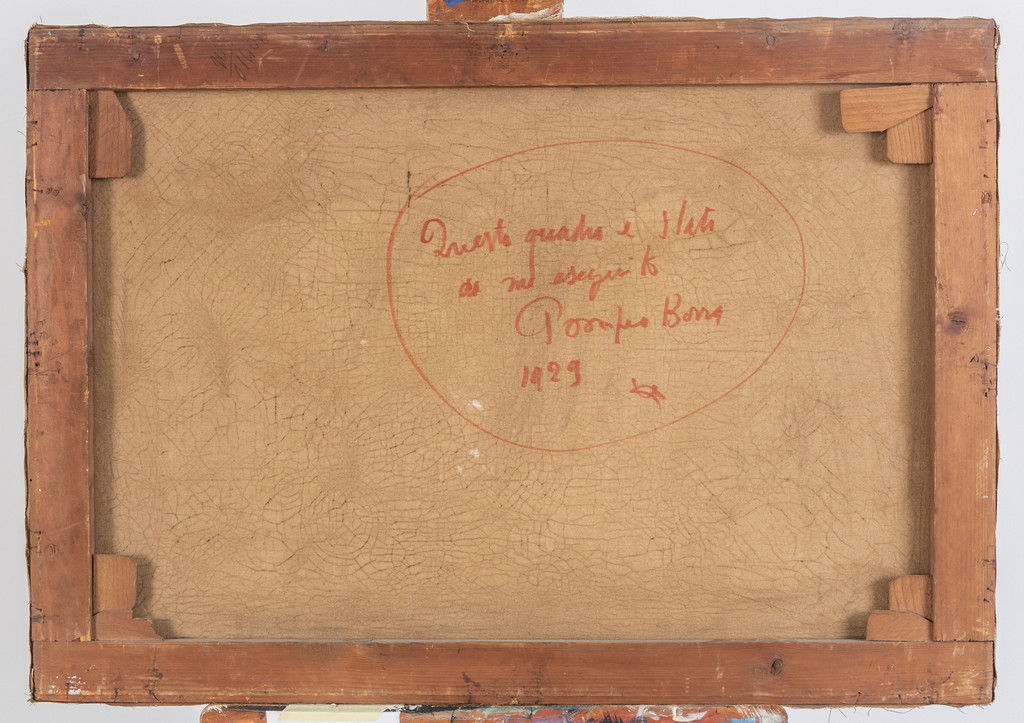 Questo quadro e stato
da me eseguito
Pompeo Borra
1929